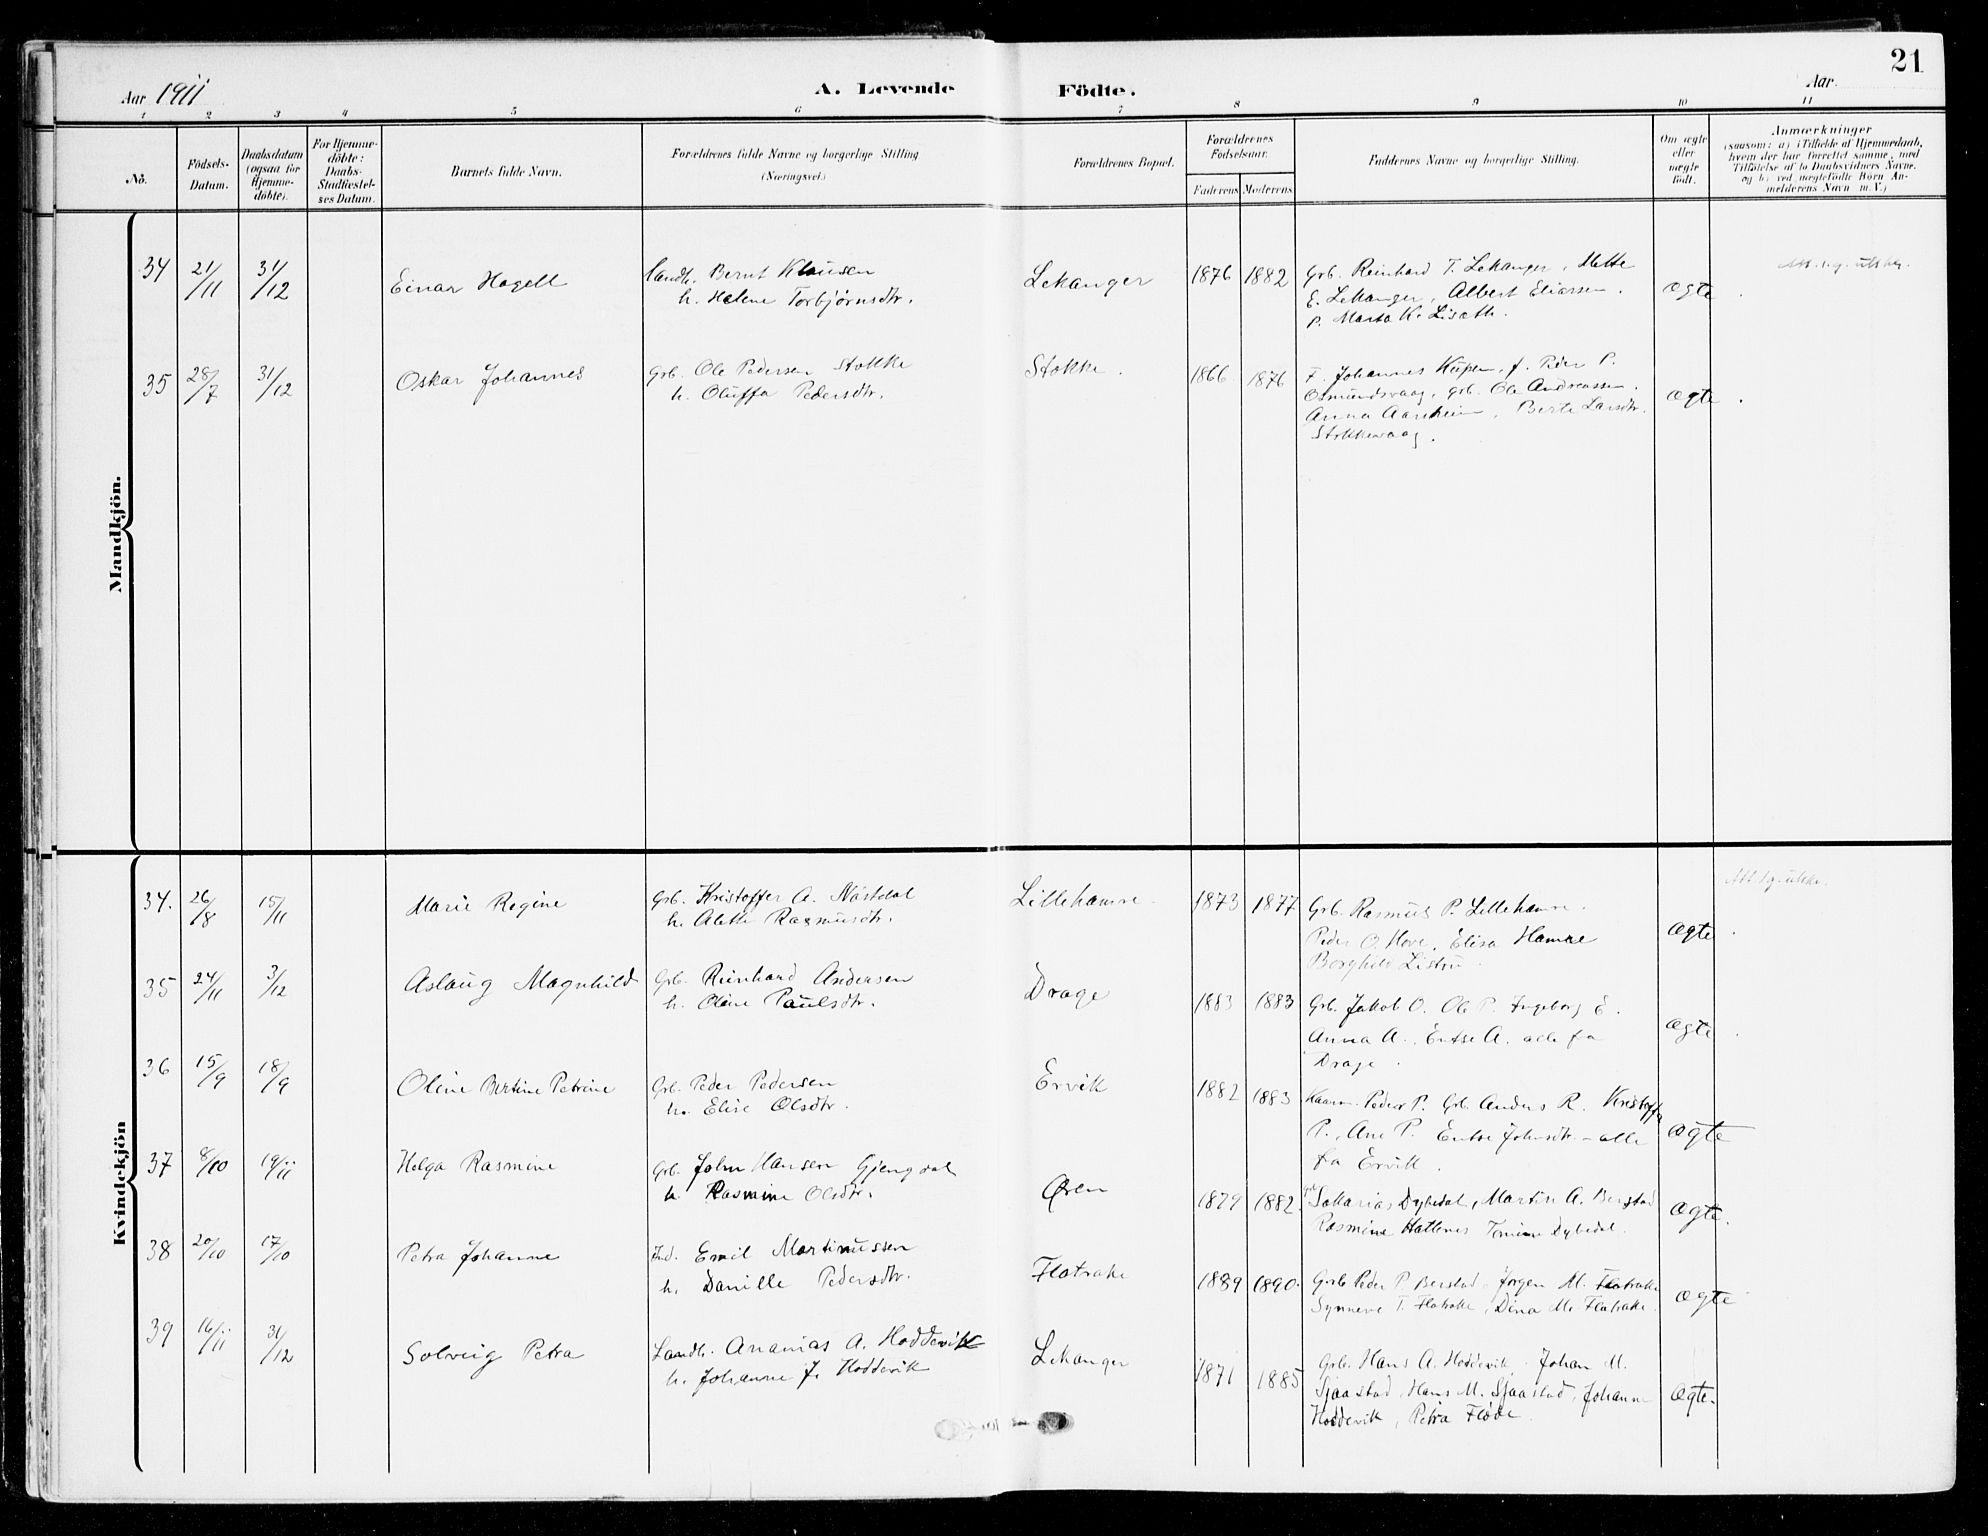 21
Aar 1911
A. Levende Födte.
Aar.
1 2 3 4 5 6 7 8 9 10 11
No.
Födsels-Datum.
Daabsdatum (ogsaa for Hjemme-döbte).
For Hjemme-döbte: Daabs-Stadfæstel-ses Datum.
Barnets fulde Navn.
Forældrenes fulde Navne og borgerlige Stilling (Næringsvei.)
Forældrenes Bopæl.
Forældrenes Födselsaar.
Faderens Moderens
Faddernes Navne og borgerlige Stilling.
Om ægte eller uægte födt.
Anmærkninger
(saasom: a) i Tilfælde af Hjemmedaab,
hvem der har forrettet samme, med
Tilföielse af to Daabsvidners Navne.
og b) ved uægtefödte Börn An-
melderens Navn m.V.)
Mandkjön.
34 21/11 31/12 Einar Hagell
Landh. Bernt Klausen
h. Helene Torbjørnsdtr.
Lekanger 1876 1882
Grb. Reinhard T. Lekanger, Mette
E. Lekanger, Albert Eliassen.
P. Marta K. Liseth.
ægte.
35 28/7 31/12 Oskar Johannes
Grb. Ole Pedersen Stokke
h. Oluffa Pedersdtr.
Stokke. 1866 1876
F. Johannes Kupen, f. Peder P.
Osmundsvaag, grb. Ole Andreassen.
Anna Aarsheim, Berte Larsdtr.
Stokkevaag.
ægte.
Kvindekjön
34. 26/8 15/11 Marie Regine
Grb. Kristoffer A. Nåstdal
h. Alette Rasmusdtr.
Lillehamre 1873 1877
Grb. Rasmus P. Lillehamre.
Peder O. Hove, Elisa Hamre
Borghild
ægte.
35 24/11 3/12 Aslaug Magnhild
Grb. Reinhard Andersen
h. Oline Paulsdtr.
Drage 1883 1883
Grb. Jakob O. Ole P. Ingeborg E.
Anna A., Entse A. alle fra
Drage.
ægte.
36 15/9 18/9 Oline Bertine Petrine
Grb. Peder Pedersen
h. Elise Olsdtr.
Ervik 1882 1883
Kaarm. Peder P. Grb. Anders R. Kristoffer
P., Ane P. Entse Johnsdtr. - alle
fra Ervik.
ægte
37 8/10 19/11 Helga Rasmine
Grb. John Hansen Gjengedal
h. Rasmine Olsdtr.
Øren 1879 1882.
Grb. Sakarias Dybedal, Martin A. Berstad
Rasmine Hatlenes Dybedal.
ægte.
38 20/10 17/10 Petra Johanne
Ind. Emil Martinussen
h. Danille Pedersdtr.
Flatrake 1889 1890.
Grb. Peder P. Berstad, Jørgen M. Flatrake
Synneve T. Flatrake, Dina M. Flatrake.
ægte
39 16/11 31/12 Solveig Petra
Landh. Ananias A. Hoddevik
h. Johanne J. Hoddevik
Lekanger 1871 1885
Grb. Hans A. Hoddevik, Johan M.
Sjaastad, Hans M. Sjaastad, Johanne
Hoddevik, Petra Fløde.
ægte.